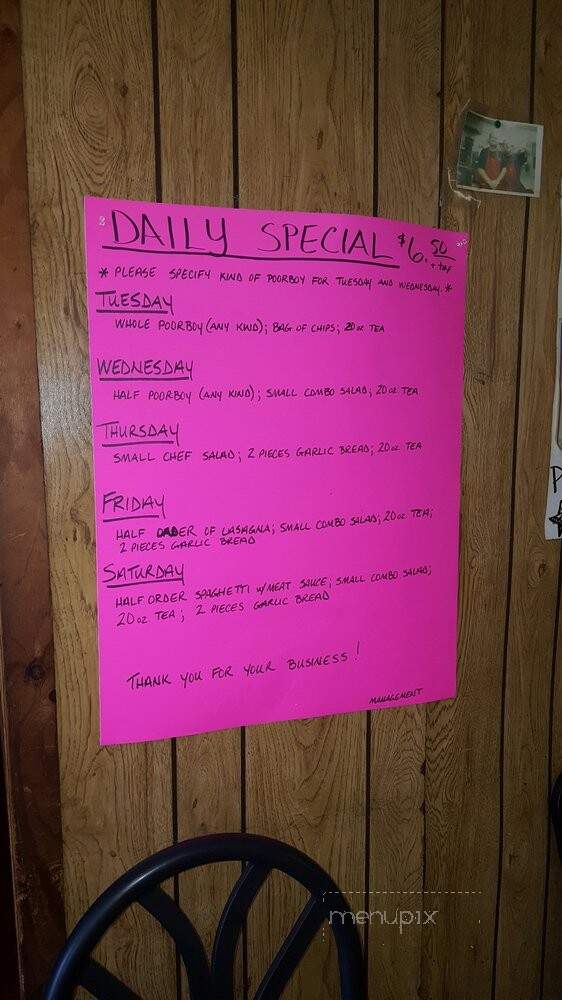 DAILY SPECIAL $6.50 + tax
* PLEASE SPECIFY KIND OF POORBOY FOR TUESDAY AND WEDNESDAY. *
TUESDAY
WHOLE POORBOY (ANY KIND); BAG OF CHIPS; 20 oz TEA
WEDNESDAY
HALF POORBOY (ANY KIND); SMALL COMBO SALAD; 20 oz TEA
THURSDAY
SMALL CHEF SALAD; 2 PIECES GARLIC BREAD; 20 oz TEA
FRIDAY
HALF ORDER OF LASAGNA; SMALL COMBO SALAD; 20 oz TEA;
2 PIECES GARLIC BREAD
SATURDAY
HALF ORDER SPAGHETTI W/MEAT SAUCE; SMALL COMBO SALAD;
20 oz TEA; 2 PIECES GARLIC BREAD
THANK YOU FOR YOUR BUSINESS!
MANAGEMENT
menupix